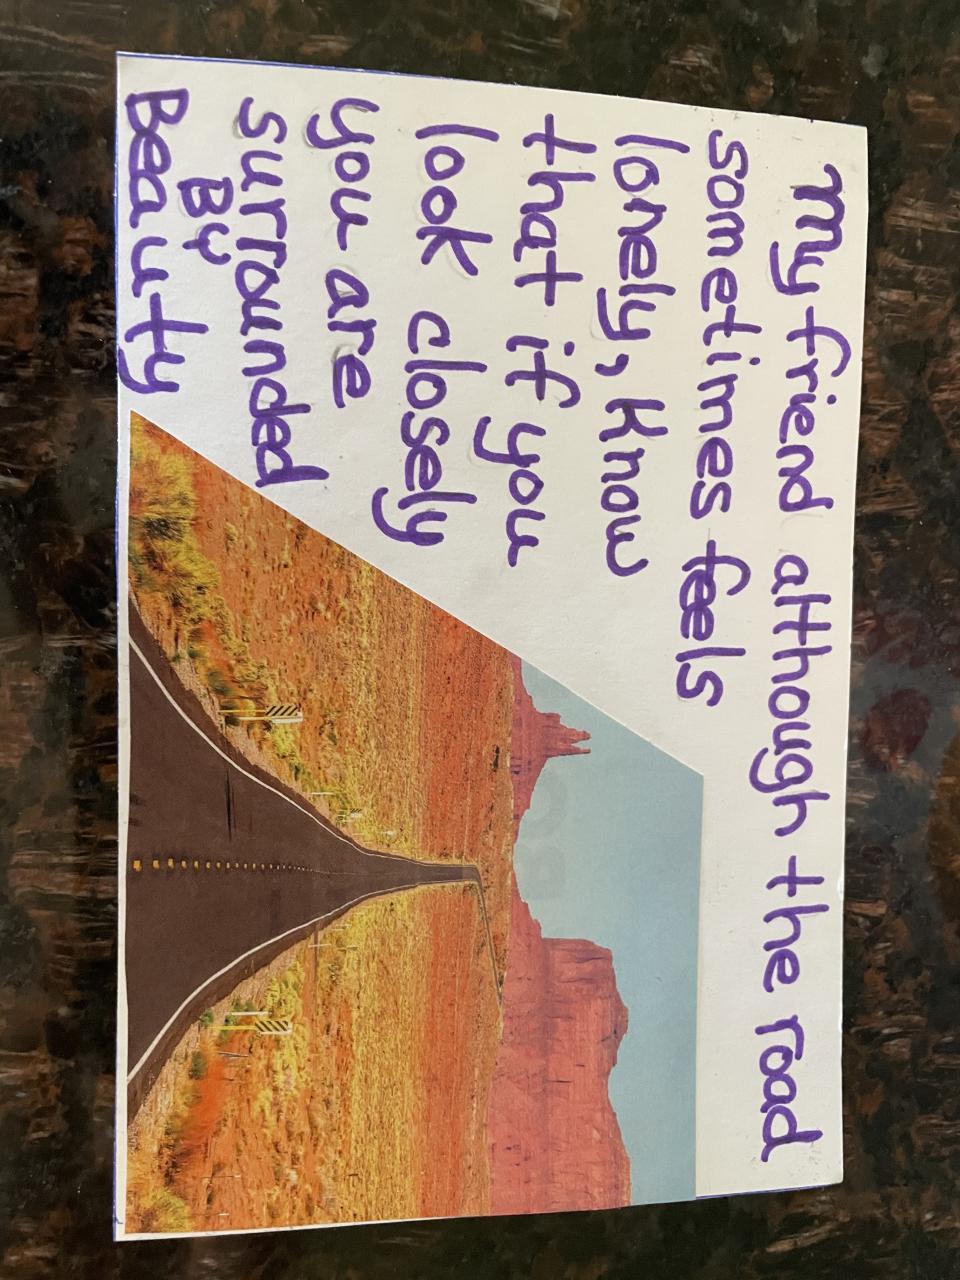 my friend although the road
sometimes feels
lonely, know
that if you
look closely
you are
surrounded
By
Beauty